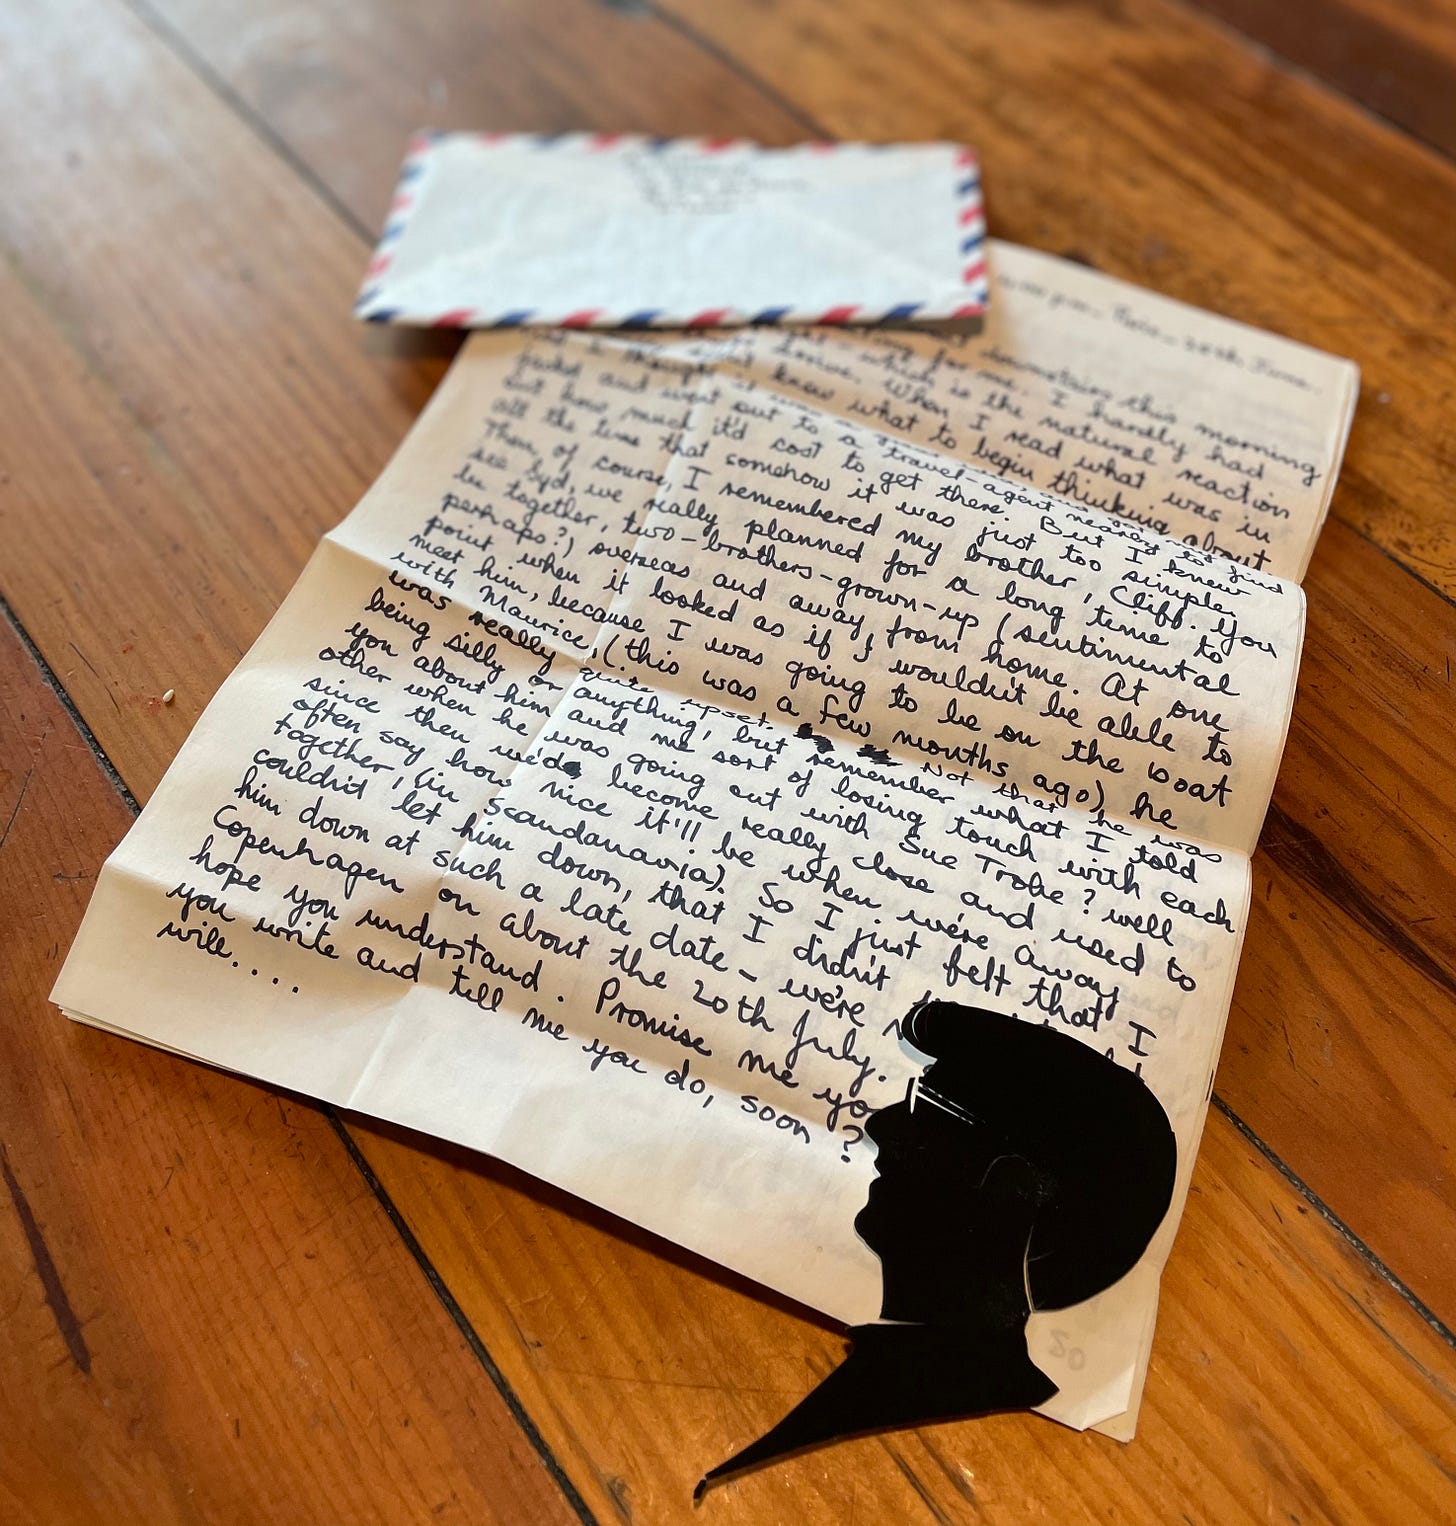 20th June.
something this morning
for me. I hardly had
which is the natural reaction
home. When I read what was in
know what to begin thinking about
thought it was a
and went out to a travel-agent nearby to find
out how much it'd cost to get there. But I knew
all the time that somehow it was just too simple.
Then, of course, I remembered my brother, Cliff. You
see Syd, we really planned for a long time to
be together, two-brothers-grown-up (sentimental
perhaps?) overseas and away from home. At one
point when it looked as if I wouldn't be able to
meet him, because I was going to be on the boat
with Maurice, (this was a few months ago) he
was really quite upset. Not that he was
being silly or anything, but remember what I told
you about him and me sort of losing touch with each
other when he was going out with Sue Trobe? well
since then we'd become really close and used to
often say how nice it'll be when we're away
together, (in Scandanavia). So I just felt that I
couldn't let him down, that I didn't
him down at such a late date – we're
Copenhagen on about the 20th July.
hope you understand. Promise me
you write and tell me you do, soon?
will....